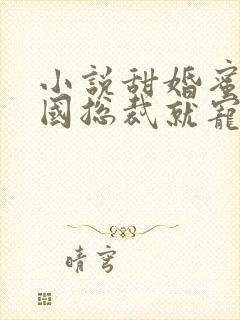 小説甜婚蜜
國总裁就寵
晴穹